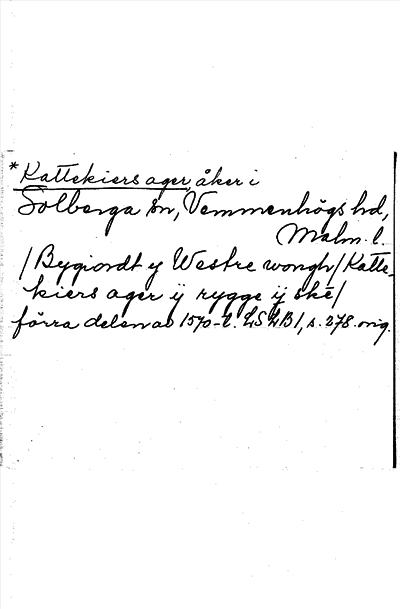 *Kattekiers ager, åker i
Solberga sn, Vemmenhögs hd,
Malm. l.
/Bygiordt y Westre wongh/Katte-
kiers ager ÿ rygge ÿ ske/
förra delen av 1570-t. LSLB1, s. 278. orig.